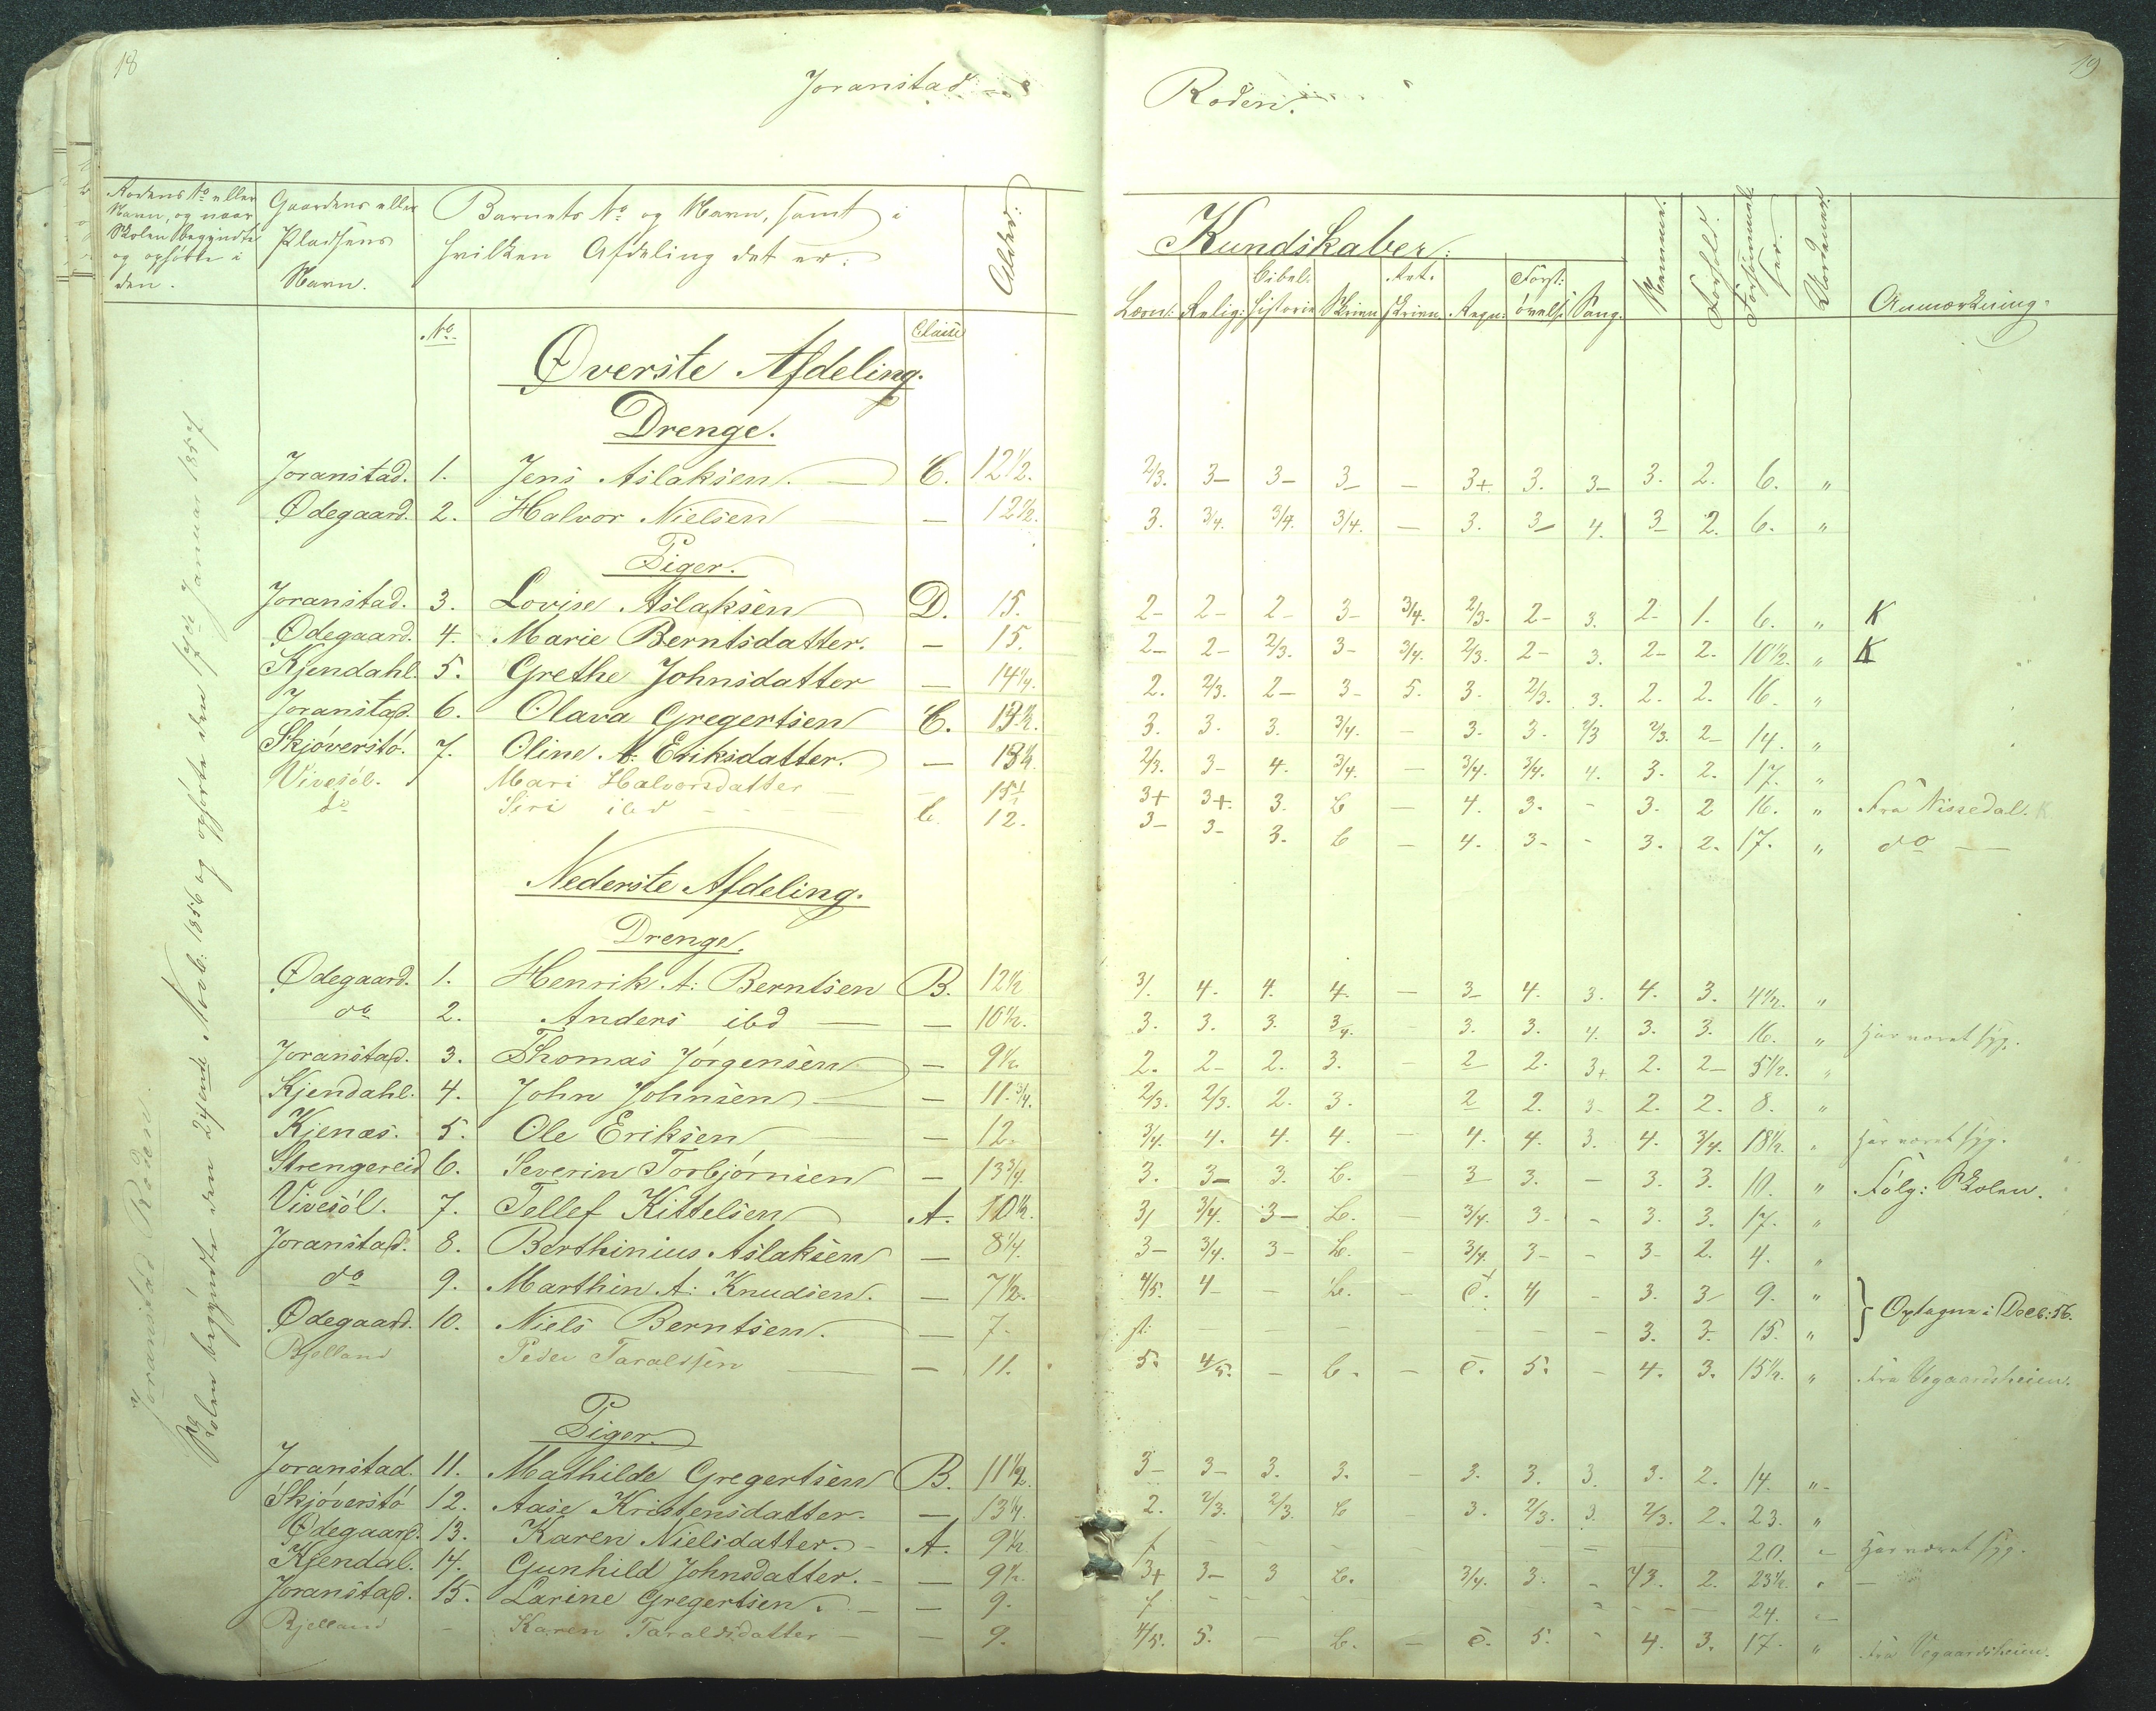 18
19
Joranstad
Roden.
Rodens No eller Navn, og naar Skolen begyndte og ophørte i den.
Gaardens eller Pladsens Navn.
Barnets No og Navn, samt i hvilken Afdeling det er.
Alder.
Kundskaber.
Læsn: Relig: Bibel: historie Skrivn Ret: skrivn Regn: Forst: øvelse Sang.
Nemme. Forhold. Forsømmelser. Anmærkning.
No. Classe
Joranstad Roden.
Skolen begyndte den 24ende Novb: 1856 og ophørte den 17de Januar 1857
Øverste Afdeling.
Drenge.
Joranstad. 1. Jens Aslaksen. — C. 12 1/2. 2/3. 3- 3- 3- — 3+ 3. 3- 3. 2. 6. "
Ødegaard. 2. Halvor Nielsen — 12 1/2. 3. 3/4. 3/4. 3/4. — 3. 3- 4. 3- 2. 6. "
Piger.
Joranstad. 3. Lovise Aslaksen D. 15. 2- 2- 2- 3- 3/4. 2/3. 2- 3. 2- 1. 6. " K
Ødegaard. 4. Marie Berntsdatter. — 15. 2- 2- 2/3. 3- 3/4. 2/3. 2- 3. 2- 2. 10 1/2. " K
Kjendahl. 5. Grethe Johnsdatter — 14 1/4. 2. 2/3. 2- 3- 5. 3. 2/3. 3. 2. 2. 16. "
Joranstad. 6. Olava Gregertsen C. 13 1/2. 3. 3. 3. 3/4. — 3. 3. 2/3 2/3. 2- 14. "
Skjøverstø. 7. Oline A. Eriksdatter. — 13 1/4. 2/3. 3- 4. 3/4. — 3/4. 3/4. 4. 3. 2. 17. "
Vivesøl. Mari Halvorsdatter — — 15 1/2 3+ 3+. 3. b — 4. 3. - 3. 2 16. " Fra Nissedal. K
do Siri ibd — C. 12. 3- 3- 3. b — 4. 3- - 3. 2. 17. " do —
Nederste Afdeling.
Drenge.
Ødegaard. 1. Henrik A: Berntsen B. 12 1/2 3/. 4. 4. 4. — 3- 4. 3. 4. 3. 4 1/2. "
do 2. Anders ibd — — 10 1/2. 3. 3. 3. 3/4. - 3. 3. 4. 3. 3. 16. " Har været syg.
Joranstad. 3. Thomas Jørgensen — 9 1/2. 2. 2- 2. 3. - 2 2. 3+ 2. 2- 5 1/2. "
Kjendahl. 4. John Johnsen — — 11 3/4. 2/3. 2/3. 2. 3. 2 2. 3- 2. 2. 8. "
Kjenæs. 5. Ole Eriksen — 12. 3/4. 4. 4. 4. - 4. 4. 3. 4. 3/4. 18 1/2. " Har været syg.
Strengereid 6. Severin Torbjørnsen — 13 3/4. 3. 3- 3. b. 3 3. - 3. 3. 10. " Følg: Skolen.
Vivesøl. 7. Tellef Kittelsen A. 10 1/2. 3/ 3/4. 3- b. - 3/4. 3- - 3. 3. 17. "
Joranstad. 8. Berthinius Aslaksen — 8 1/4. 3- 3/4. 3- b. - 3/4. 3- - 3- 2. 4. "
do 9. Marthin A: Knudsen. — 7 1/2. 4/5. 4- - b. - 4 - 3. 3- 9. "
Ødegaard. 10. Niels Berntsen. — 7. 3. 3. 15. " } Optagne i Decb: 56.
Bjelland Peder Taraldsen — — 11. 5. 4/5. - b. - 5. - 4. 3. 15 1/2. " Fra Vegaardsheien.
Piger.
Joranstad. 11. Mathilde Gregertsen B. 11 1/2. 3- 3- 3. 3. — 3. 3. 3. 3. 2. 14. "
Skjøverstø 12. Aase Kristensdatter. — 13 1/4. 2. 2/3. 2/3. b - 3. 2/3. 3. 2/3. 2. 23. "
Ødegaard. 13. Karen Nielsdatter. - A. 9 1/2. 20. " Har været syg.
Kjendal. 14. Gunhild Johnsdatter. — 9 1/2. 3+ 3- 3 b. 3/4. 3. - 2/3. 2. 23 1/2. " —
Joranstad. 15. Larine Gregertsen. — — 9. 24. "
Bjelland - Karen Taraldsdatter — — 9. 4/5. 5. — b. - 5. - 4. 3. 17. " Fra Vegaardsheien.